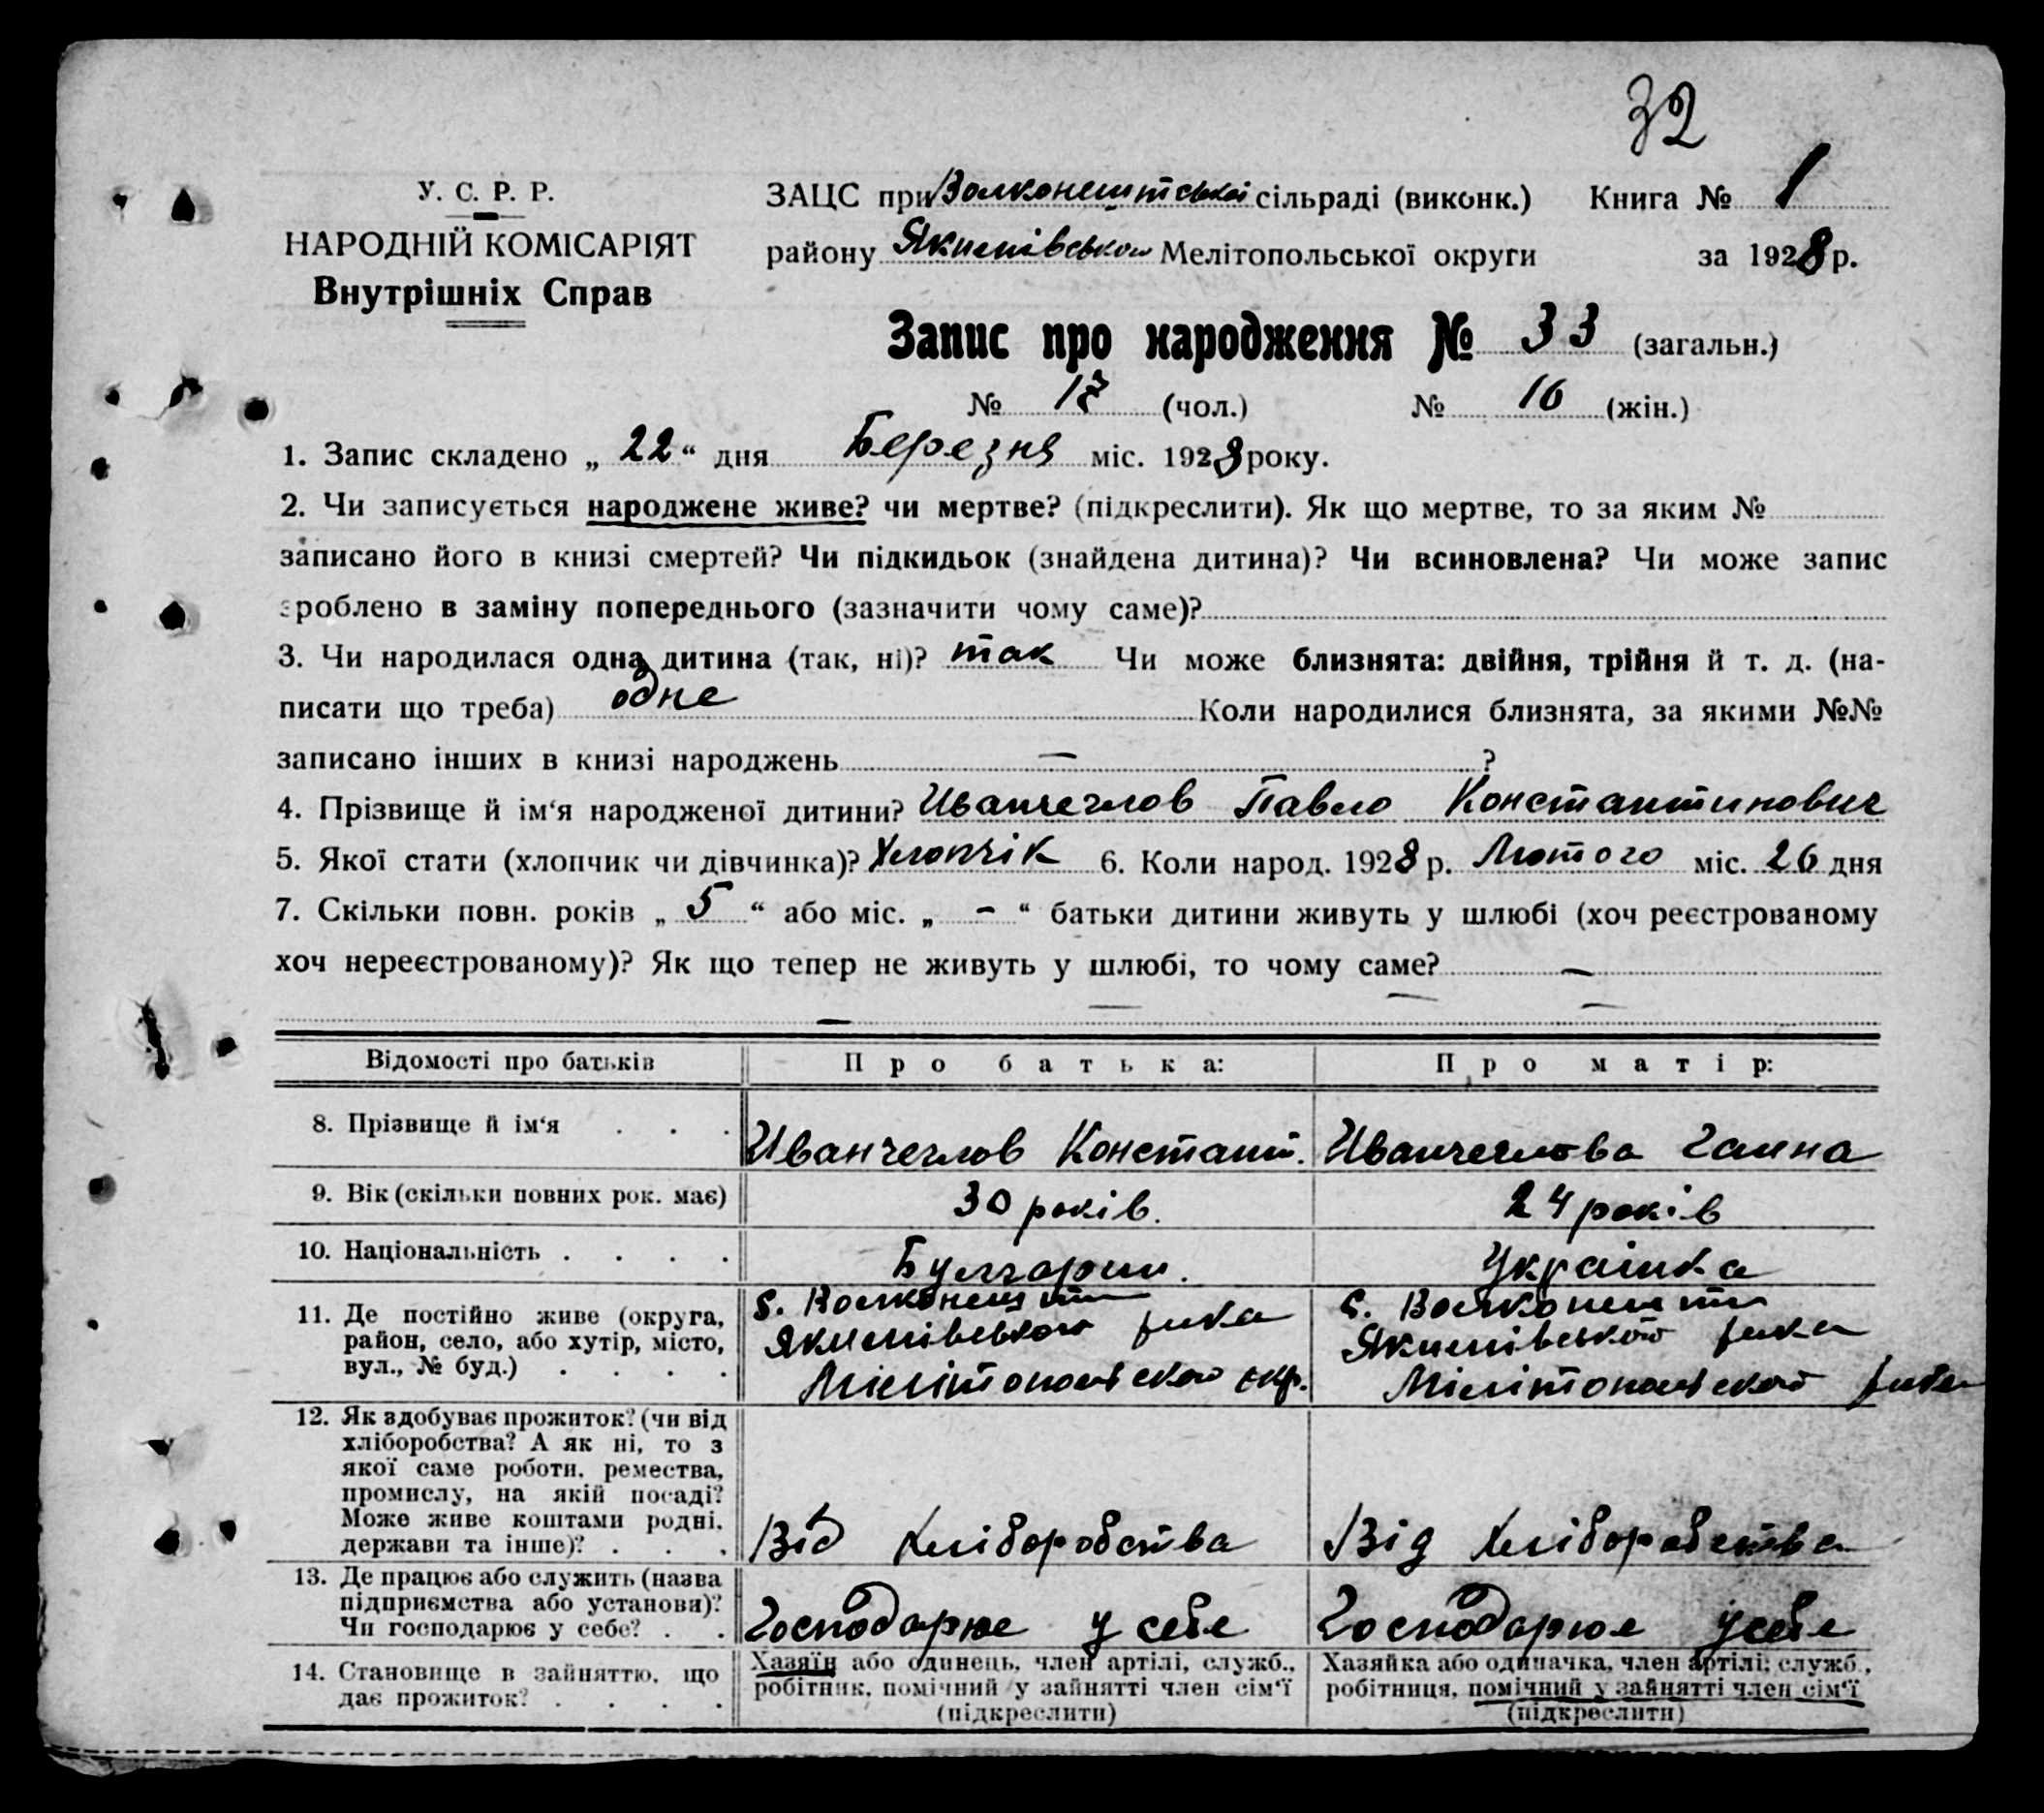 32
У. С. Р. Р.
НАРОДНІЙ КОМІСАРІЯТ
Внутрішніх Справ
ЗАЦС при Волконештській сільраді (виконк.) Книга № 1
району Якимівського Мелітопольської округи за 1928 р.
Запис про народження № 33 (загальн.)
№ 17 (чол.) № 16 (жін.)
1. Запис складено „ 22 “ дня Березня міс. 1928 року.
2. Чи записується народжене живе? чи мертве? (підкреслити). Як що мертве, то за яким №
записано його в книзі смертей? Чи підкидьок (знайдена дитина)? Чи всиновлена? Чи може запис
зроблено в заміну попереднього (зазначити чому саме)?
3. Чи народилася одна дитина (так, ні)? так Чи може близнята: двійня, трійня й т. д. (на-
писати що треба) одне Коли народилися близнята, за якими №№
записано інших в книзі народжень — ?
4. Прізвище й ім‘я народженої дитини? Иванчеглов Павло Константинович
5. Якої стати (хлопчик чи дівчинка)? Хлопчік 6. Коли народ. 1928 р. Лютого міс. 26 дня
7. Скільки повн. років „ 5 “ або міс. „ - “ батьки дитини живуть у шлюбі (хоч реєстрованому
хоч нереєстрованому)? Як що тепер не живуть у шлюбі, то чому саме? —
—
Відомості про батьків Про батька: Про матір:
8. Прізвище й ім‘я . . . Иванчеглов Констант. Иванчеглова Ганна
9. Вік (скільки повних рок. має) 30 років. 24 років
10. Національність . . . . Булгарин. Украінка
11. Де постійно живе (округа,
район, село, або хутір, місто,
вул., № буд.) . . . .
с. Волконешти
Якимівського р-ка
Мілітопольскои окр.
с. Волконешти
Якимівського р-ка
Мілітопольского р-ка
12. Як здобуває прожиток? (чи від
хліборобства? А як ні, то з
якої саме роботи, ремества,
промислу, на якій посаді?
Може живе коштами родні,
держави та інше)? . . .
Від хліборобства Від хліборобства
13. Де працює або служить (назва
підприємства або установи)?
Чи господарює у себе? . .
Господарює у себе Господарює у себе
14. Становище в зайняттю, що
дає прожиток? . . . .
Хазяїн або одинець, член артілі, служб.,
робітник, помічний у зайнятті член сім‘ї
(підкреслити)
Хазяйка або одиначка, член артілі; служб.,
робітниця, помічний у зайнятті член сім‘ї
(підкреслити)